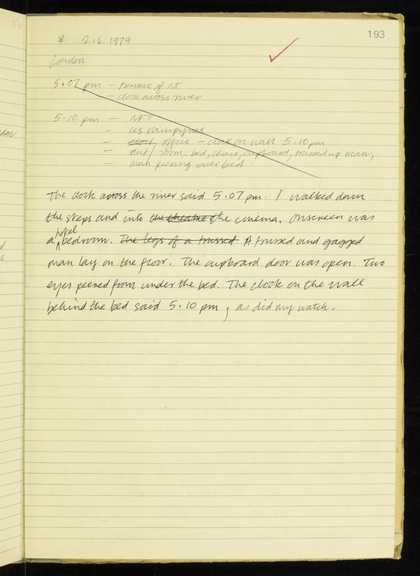 193
* 2.6.1979
London
5.07 pm – terrace of NFT
– clock across river
5.10 pm – NFT
– Les Vampires
– office – clock on wall 5.10 pm
– cut / room, bed, chair, cupboard, trussed up man,
– man peering over bed
The clock across the river said 5.07 pm. I walked down
the steps and into the theatre of the cinema. Onscreen was
a hotel bedroom. The legs of a trussed A trussed and gagged
man lay on the floor. The cupboard door was open. Two
eyes peered from under the bed. The clock on the wall
behind the bed said 5.10 pm, as did my watch.